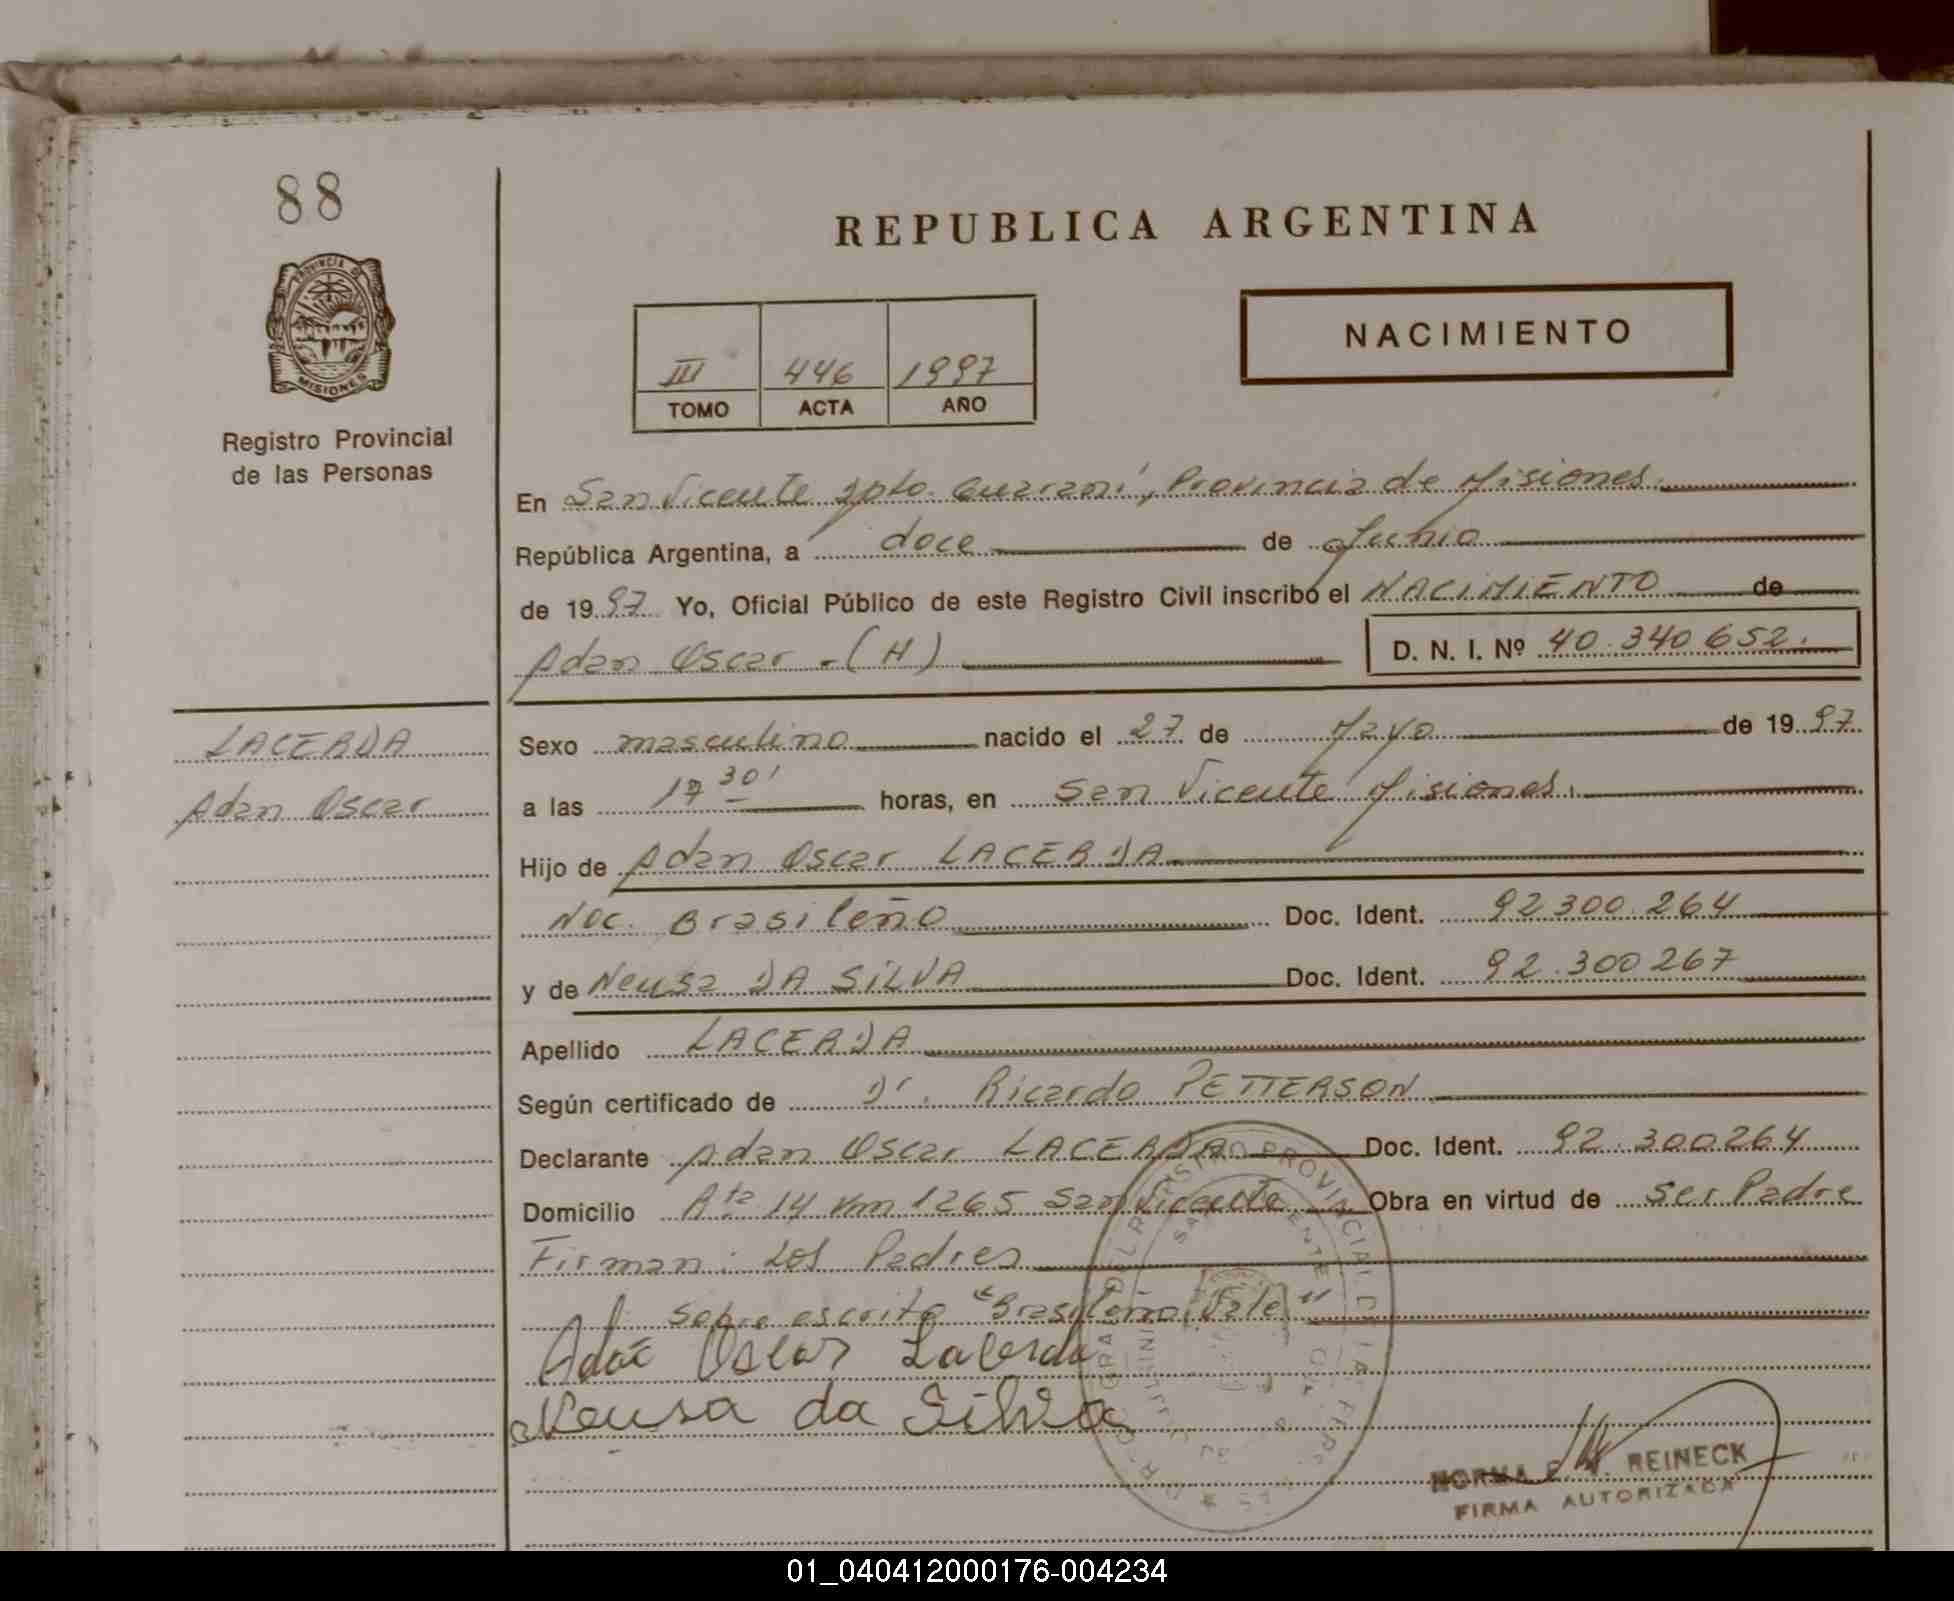 88
REPUBLICA ARGENTINA
PROVINCIA DE
MISIONES
Registro Provincial
de las Personas
NACIMIENTO
III 446 1997
TOMO ACTA AÑO
En San Vicente Dpto. Guaraní, Provincia de Misiones.
República Argentina, a doce de Junio
de 1997 Yo, Oficial Público de este Registro Civil inscribo el NACIMIENTO de
Adan Oscar - (H) D. N. I. Nº 40.340.652.
LACERDA
Adan Oscar
Sexo masculino nacido el 27 de Mayo de 1997
a las 17 30' horas, en San Vicente Misiones.
Hijo de Adan Oscar LACERDA
Nac. Brasileño Doc. Ident. 92300.264
y de Neusa DA SILVA Doc. Ident. 92.300267
Apellido LACERDA
Según certificado de Dr. Ricardo PETTERSON
Declarante Adan Oscar LACERDA Doc. Ident. 92.300264
Domicilio Rta 14 Km 1265 San Vicente Obra en virtud de ser Padre
Firman: Los Padres
Sobre escrito "Brasileño Vale"
Adão Oscar Lacerda
Neusa da Silva
REGISTRO PROVINCIAL
SAN VICENTE
NORMA REINECK
FIRMA AUTORIZADA
01_040412000176-004234